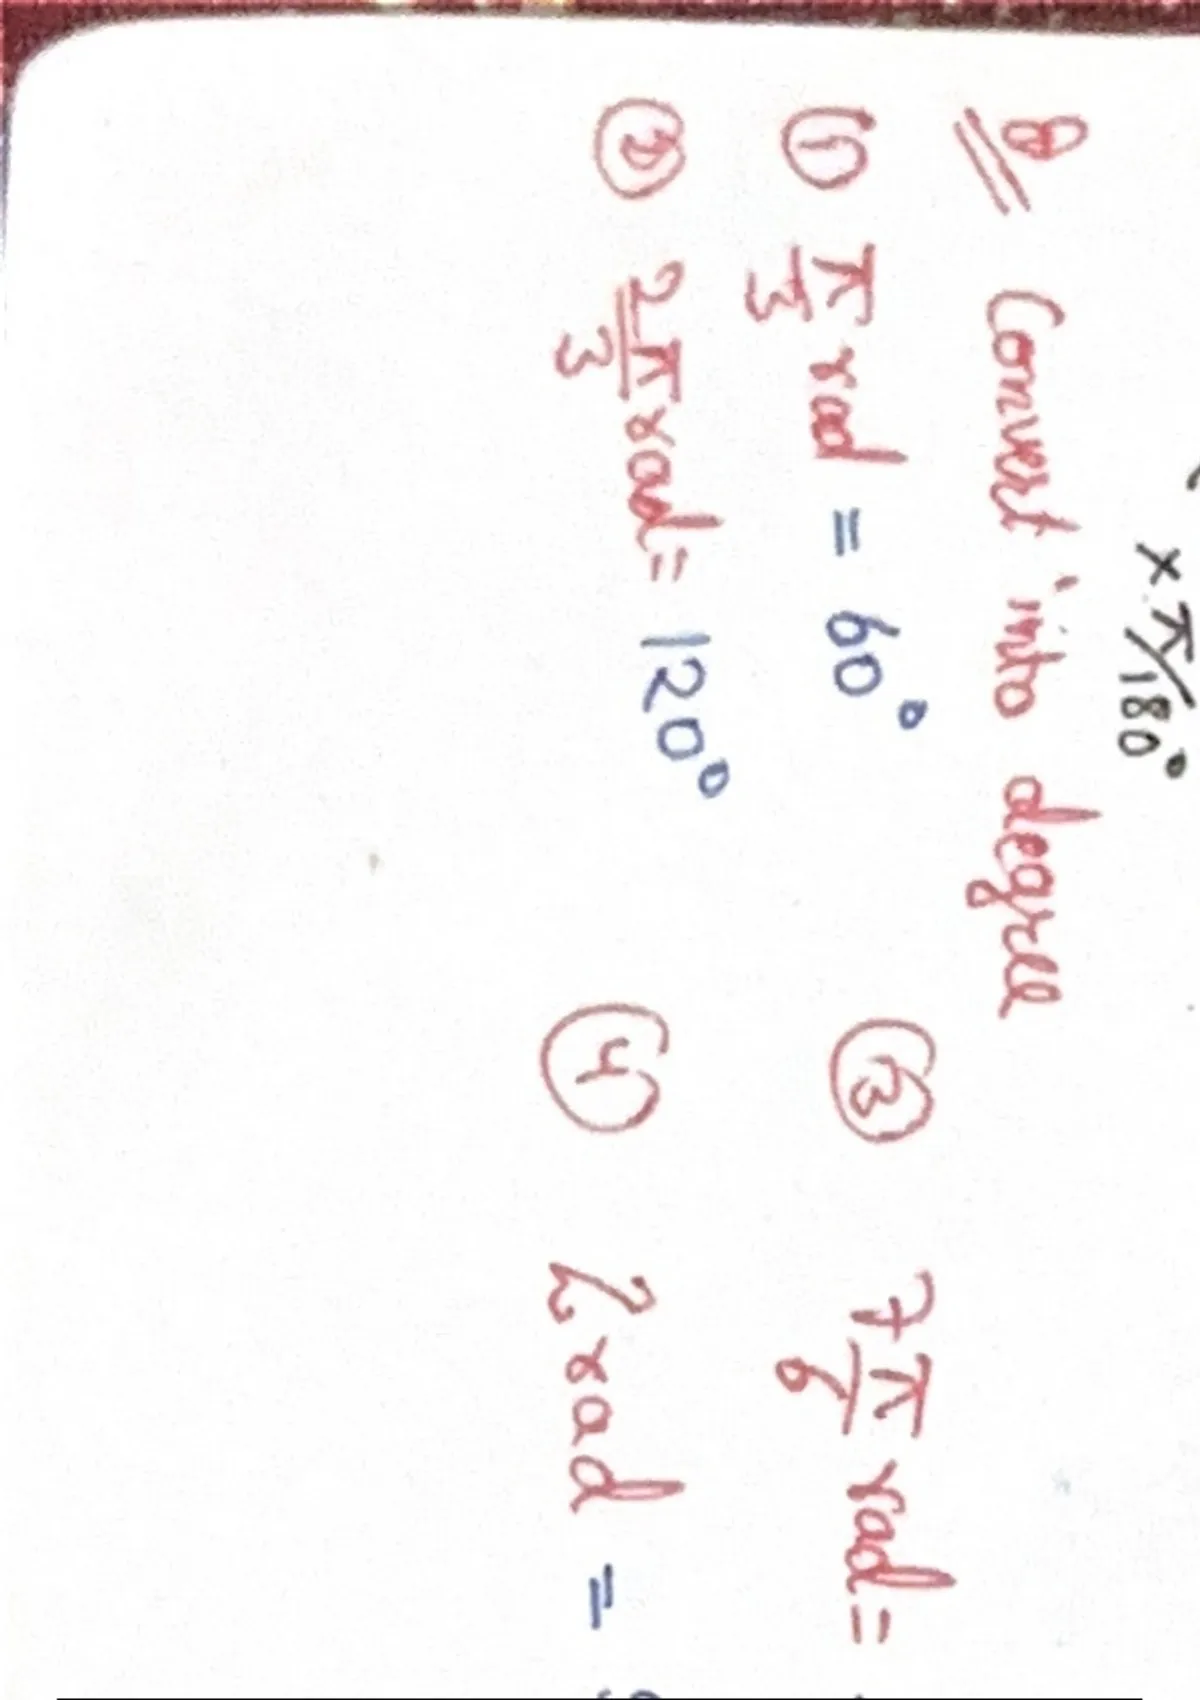 × π/180°
Q Convert into degree
① π/3 rad = 60°
② 2π/3 rad = 120°
③ 7π/6 rad =
④ 2 rad =